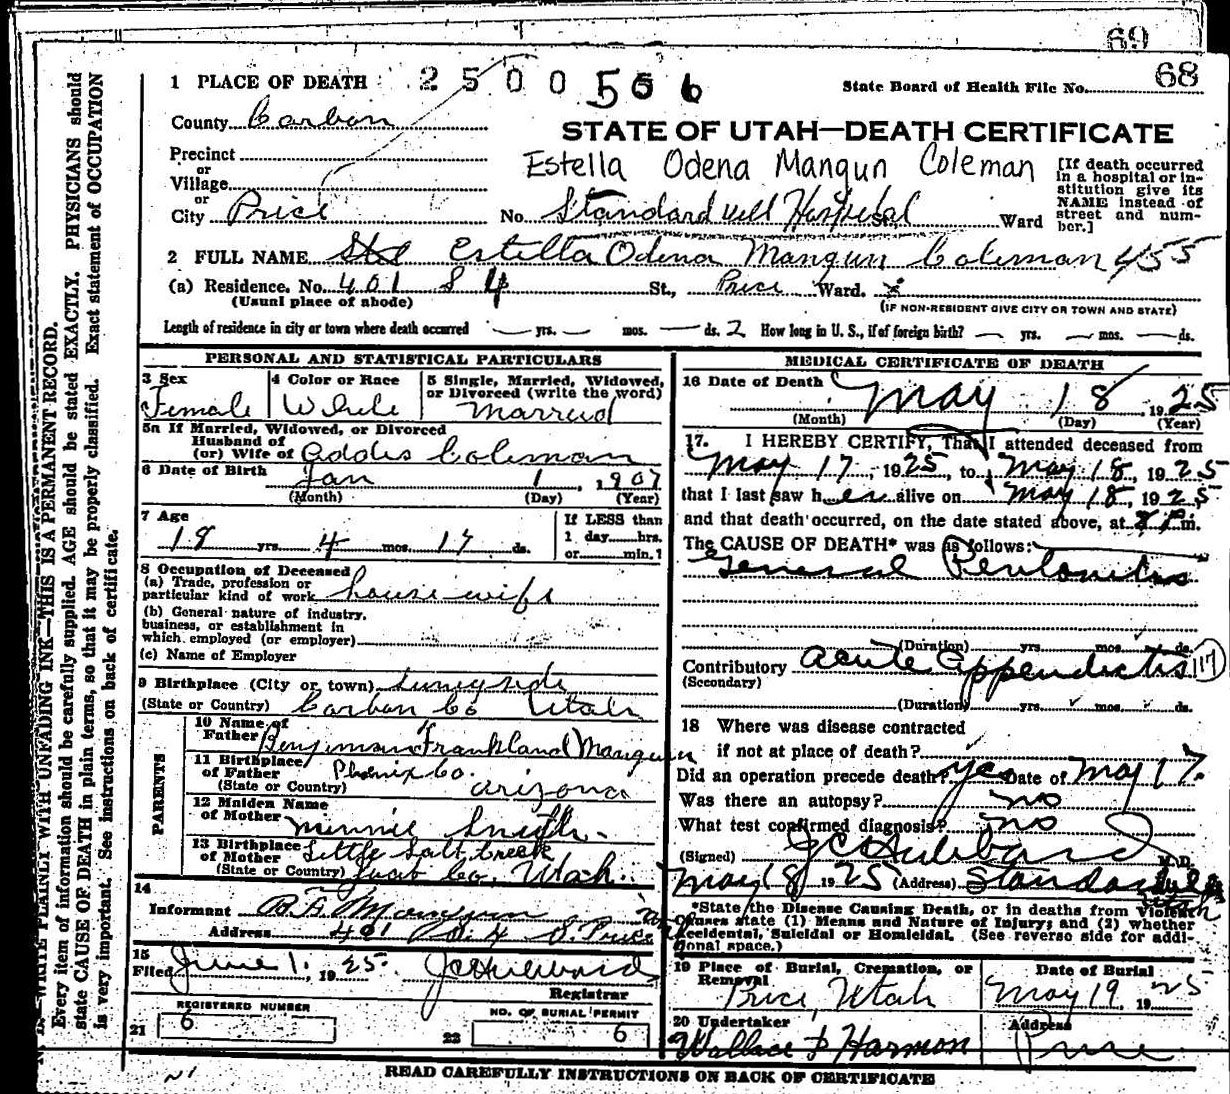 69
68
1 PLACE OF DEATH 2500556 State Board of Health File No.
County Carbon
STATE OF UTAH—DEATH CERTIFICATE
Precinct
or
Village
or
City Price
Estella Odena Mangun Coleman
No. Standardvill Hospital St. Ward
[If death occurred in a hospital or institution give its NAME instead of street and number.]
2 FULL NAME Estella Odena Mangun Coleman 455
(a) Residence. No. 401 S 4 St., Price Ward.
(Usual place of abode) (IF NON-RESIDENT GIVE CITY OR TOWN AND STATE)
Length of residence in city or town where death occurred — yrs. — mos. — ds. 2 How long in U. S., if of foreign birth? — yrs. — mos. — ds.
PERSONAL AND STATISTICAL PARTICULARS
3 Sex Female
4 Color or Race White
5 Single, Married, Widowed, or Divorced (write the word) Married
5a If Married, Widowed, or Divorced
Husband of
(or) Wife of Addis Coleman
6 Date of Birth Jan 1, 1907
(Month) (Day) (Year)
7 Age 18 yrs. 4 mos. 17 ds.
If LESS than
1 day hrs.
or min.?
8 Occupation of Deceased
(a) Trade, profession or
particular kind of work housewife
(b) General nature of industry,
business, or establishment in
which employed (or employer)
(c) Name of Employer
9 Birthplace (City or town) Sunnyside
(State or Country) Carbon Co Utah
PARENTS
10 Name of
Father Benjiman Frankland Mangun
11 Birthplace
of Father Phenix Co.
(State or Country) Arizona
12 Maiden Name
of Mother Minnie Smith
13 Birthplace
of Mother Little Salt Creek
(State or Country) Juab Co. Utah.
14
Informant B F Mangun
Address 401 So. Price
15
Filed June 1. 1925. J C Hubbard
Registrar
REGISTERED NUMBER
21 6
NO. OF BURIAL PERMIT
22 6
MEDICAL CERTIFICATE OF DEATH
16 Date of Death May 18, 1925
(Month) (Day) (Year)
17. I HEREBY CERTIFY, That I attended deceased from
May 17, 1925, to May 18, 1925
that I last saw her alive on May 18, 1925
and that death occurred, on the date stated above, at m.
The CAUSE OF DEATH* was as follows:
General Peritonitis
(Duration) yrs. mos. ds.
Contributory Acute Appendicitis 117
(Secondary)
(Duration) yrs. mos. ds.
18 Where was disease contracted
if not at place of death?
Did an operation precede death? yes Date of May 17.
Was there an autopsy? no
What test confirmed diagnosis? no
(Signed) J C Hubbard M.D.
May 18 1925 (Address) Standardville Utah
*State the Disease Causing Death, or in deaths from Violent
Causes state (1) Means and Nature of Injury; and (2) whether
Accidental, Suicidal or Homicidal. (See reverse side for additional space.)
19 Place of Burial, Cremation, or Removal
Price, Utah
Date of Burial
May 19, 1925
20 Undertaker
Wallace & Harmon
Address
Price
READ CAREFULLY INSTRUCTIONS ON BACK OF CERTIFICATE
WRITE PLAINLY WITH UNFADING INK—THIS IS A PERMANENT RECORD.
Every item of information should be carefully supplied. AGE should be stated EXACTLY. PHYSICIANS should
state CAUSE OF DEATH in plain terms, so that it may be properly classified. Exact statement of OCCUPATION
is very important. See instructions on back of certificate.